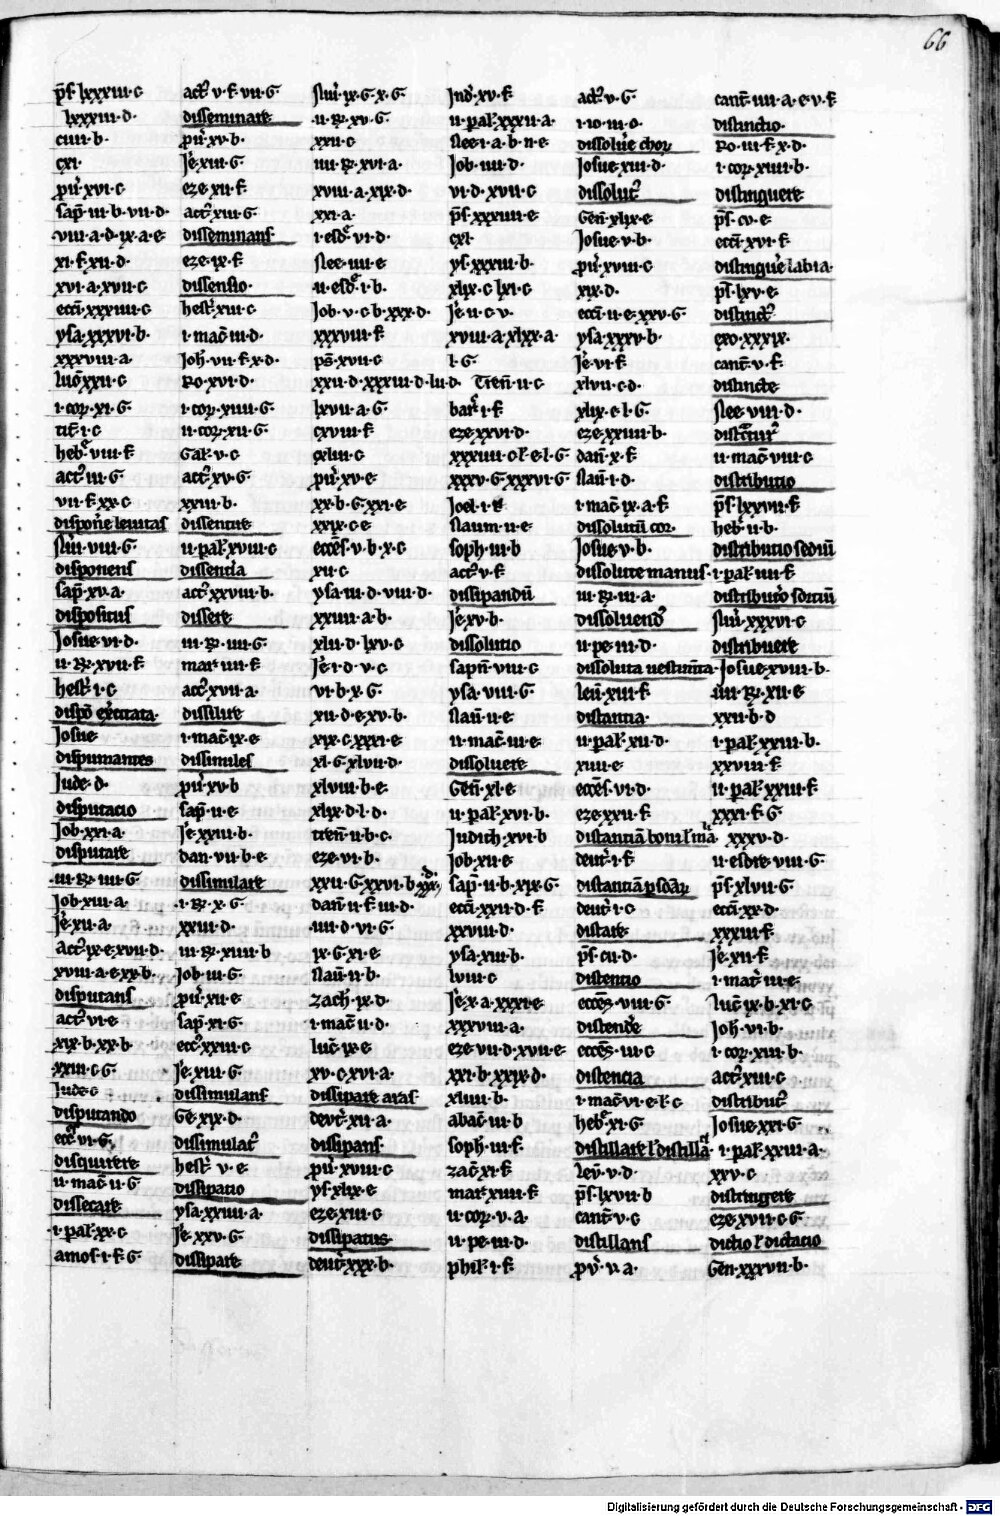 66
ps̄ lxxxiii·c
lxxxiii·d·
ciiii·b·
cxi·
pu̇·xvi·c
sap̄·iii·b·vii·d·
·viii·a·d·ix·a·e
xi·f·xii·d·
xvi·a·xvii·c
ecci·xxxiiii·c
ysa·xxxvi·b·
xxxviii·a·
luc̄ xxii·c
i·cor·xi·G·
tit·i·c
heb·viii·f
act·iii·G·
vii·f·xx·c
dispone leuitas
nu·viii·G·
disponens
sap̄·xv·a·
dispositus
Josue·vi·d·
ii·R·xvii·f
hest·i·c
Josue
dispumantes
Jude·d·
disputacio
Job·xxi·a·
disputare
·iii·R·iiii·G·
Job·xiii·a·
Je·xii·a·
act·ix·e·xvii·d·
xviii·a·e·xx·b·
disputans
act·vi·e
xix·b·xx·b·
·xxiii·c·G·
Jude·c
disputando
disquirere
ii·mac̄·ii·G·
dissecare
i·pal·xx·c
amos·i·f·G
act·v·f·vii·G
disseminare
pu̇·xv·b·
Je·xiii·G
eze·xii·f
act·xiii·G·
disseminans
eze·ix·f
dissensio·
hest·xiii·c
i·mac̄·iii·d·
Joh·vii·f·x·d·
Ro·xvi·d·
i·cor·xiiii·G·
ii·cor·xii·G·
Gal·v·c
act·xv·G·
xxiii·b·
dissentire
ii·pal·xviii·c
dissencia
act·xxviii·b·
dissere
iii·R·iiii·G·
mat·iiii·f
act·xvii·a·
dissilire
i·mac̄·ix·e
dissimiles
pu̇·xv·b
sap̄·ii·e
Je·xxiii·b·
dan·vii·b·e
dissimilare
·i·R·x·G·
xxiii·d·
iii·R·xiiii·b
Job·iii·G·
pu̇·xii·e
sap̄·xi·G·
ecc·xxiii·c
Je·xiii·G·
dissimulans
Ge·xix·d·
dissimulat
hest·v·e
dissipatio
ysa·xxiiii·a·
Je·xxv·G·
dissipare
nu·ix·G·x·G
ii·R·xv·G·
xxii·c
iiii·R·xvi·a·
xviii·a·xix·d·
xxi·a·
i·esd·vi·d·
nee·iiii·e
ii·esd·i·b·
Job·v·c·b·xxx·d·
xxxviii·f
ps̄·xvii·c
xxii·d·xxxiii·d·lii·d·
lxvii·a·G·
cxviii·f
cxliii·c
pu̇·xv·e
xx·b·G·xxi·e
xxix·c·e
ecces·v·b·x·c
xii·c
ysa·iii·d·viii·d·
xxiiii·a·b·
xlii·d·lxv·c
Je·i·d·v·c
vi·b·x·G·
xii·d·e·xv·b·
xix·c·xxxi·e
xl·G·xlvii·d·
xlviii·b·e·
xlix·d·l·d·
tren̄·ii·b·c·
eze·vi·b·
dan̄·ii·f·iii·d·
iiii·d·vi·G·
ix·G·xi·e
nau̇·ii·b·
zach·ix·d·
i·mac̄·ii·d·
luc̄·ix·e
xv·c·xvi·a·
dissipare aras
deut·xii·a·
dissipans·
pu̇·xviii·c
ys·xlix·e
eze·xiii·c
dissipatus·
deut·xxx·b·
Jud·xv·f
ii·pal·xxxii·a·
nee·i·a·b·n·e
Job·iiii·d·
vi·d·xvii·c
ps̄·xxxiiii·e
cxl·
ys·xxxiii·b·
xlix·c·lxi·c
Je·ii·c·v·
xviii·a·xlxx·a·
l·G
Tren̄·ii·c
bar·i·f
eze·xxvi·d·
xxxiiii·c·f·e·l·G
xxxv·G·xxxvi·G
Joel·i·f
naum·ii·e
soph·iii·b
act·v·f
dissipandū
Je·xv·b·
dissolutio
sapn̄·viii·c
ysa·viii·G·
nau̇·ii·e
ii·mac̄·iii·e
dissoluere
Gen̄·xl·e
ii·pal·xvi·b·
Judich·xvi·b
Job·xii·e
sap̄·ii·b·xix·G·
ecci·xxii·d·f
xxviii·d·
ysa·xiii·b·
lviii·c
Je·x·a·xxxi·e
xxxviii·a·
eze·vii·d·xvii·e
xxi·b·xxix·d·
xliii·b·
abac̄·iii·b
soph·iii·f
zac̄·xi·f
mat·xiiii·f
ii·cor·v·a·
ii·pe·iii·d·
phil·i·f
act·v·G·
i·io·iii·c·
Josue·xiii·d·
dissolut
Gen̄·xlix·e
Josue·v·b·
pu̇·xviii·c
xix·d·
ecci·ii·e·xxv·G
ysa·xxxv·b·
Je·vi·f
xlvii·c·d·
xlix·e·l·G·
eze·xxiiii·b·
dan̄·x·f
nau̇·i·d·
i·mac̄·ix·a·f
dissolutū cor·
Josue·v·b·
dissolute manus·
iii·R·iii·a·
dissoluend
ii·pe·iii·d·
dissoluta uestimta·
leu̇·xiii·f
distantia·
ii·pal·xii·d·
xiiii·e
ecces·vi·d·
eze·xxii·f
deut·i·f
deut·i·c
distare
ps̄·cii·d·
distentio
ecces·viii·G·
distende
ecces·iii·c
distencia
i·mac̄·vi·e·f·c
heb·xi·G·
leu̇·v·d·
ps̄·lxvii·b
cant·v·c
distillans
pu̇·v·a·
cant·iiii·a·e·v·f
distinctio·
Ro·iii·f·x·d·
i·cor·xiiii·b·
distinguere
ps̄·cv·e
ecci·xvi·f
distinguere labia·
ps̄·lxv·e
distinct
exo·xxxix·
cant·v·f
distincte
nee·viii·d·
ii·mac̄·viii·c
distributio
ps̄·lxxvii·f
heb·ii·b·
distributio sediū
i·pal·iiii·f
distributio sortiū
nu·xxxvi·c
distribuere
Josue·xviii·b·
iiii·R·xii·e
xxii·b·d
i·pal·xxiii·b·
xxviii·f·
ii·pal·xxiii·f
xxxi·f·G·
xxxv·d·
ii·esdre·viii·G·
ps̄·xlvii·G·
ecci·xx·d·
xxxiii·f
Je·xii·f
i·mat·iii·e·
luc̄·ix·b·xi·c
Joh·vi·b·
i·cor·xiii·b·
act·xiii·c
distribut
Josue·xxi·G·
i·pal·xxiii·a·
xxv·c
distringere
eze·xvii·c·G·
dictio l dictacio
Gen·xxxvii·b·
Digitalisierung gefördert durch die Deutsche Forschungsgemeinschaft - DFG